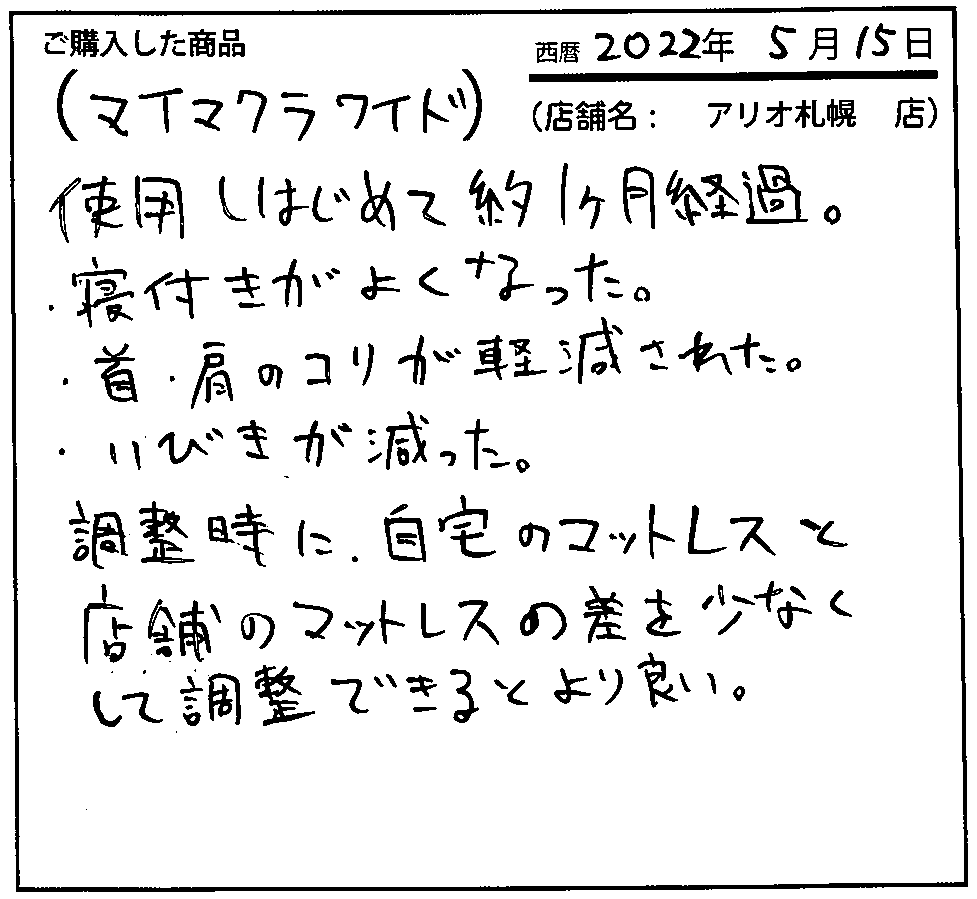 ご購入した商品
西暦 2022年 5月15日
(マイマクラワイド)
(店舗名: アリオ札幌 店)
使用しはじめて約1ヶ月経過。
・寝付きがよくなった。
・首・肩のコリが軽減された。
・いびきが減った。
調整時に、自宅のマットレスと
店舗のマットレスの差を少なく
して調整できるとより良い。